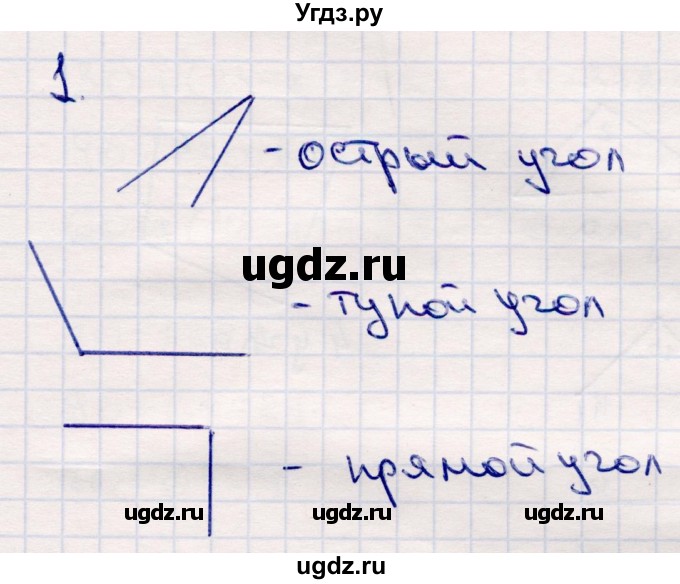 Угдз.ру
1.
- острый угол
ugdz.ru
- тупой угол
- прямой угол
ugdz.ru ugdz.ru ugdz.ru
ugdz.ru